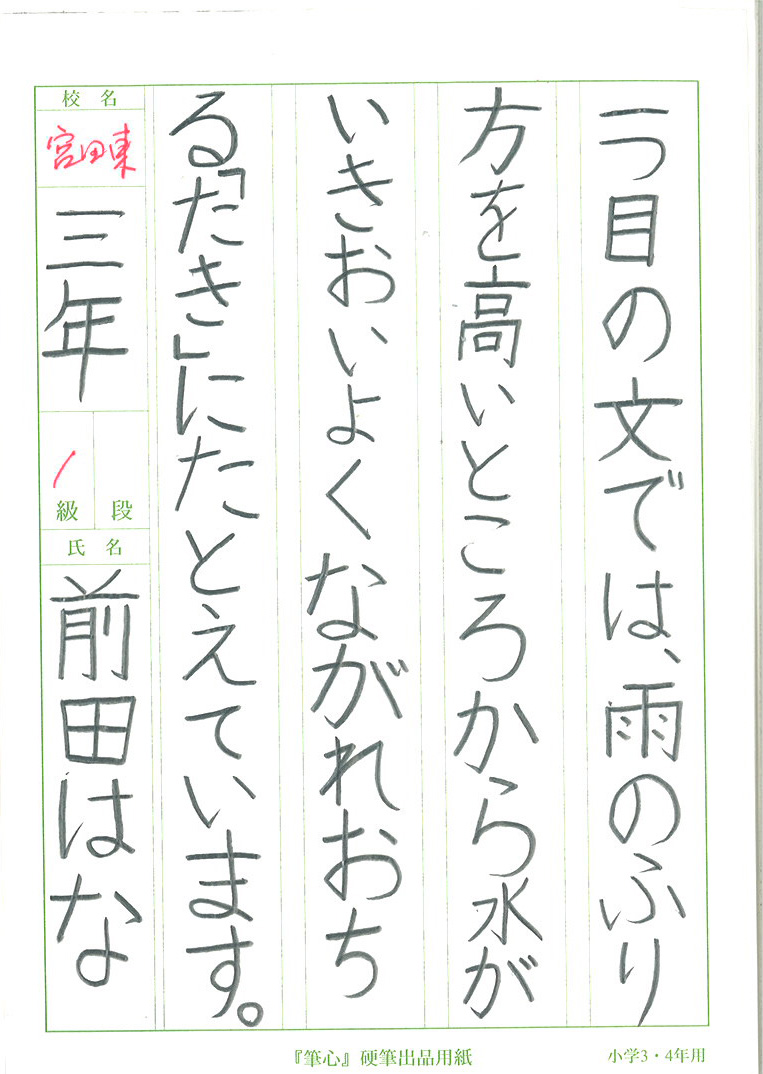 一つ目の文では、雨のふり
方を高いところから水が
いきおいよくながれおち
る「たき」にたとえています。
校名
宮田東
三年
1
級 段
氏名
前田はな
『筆心』硬筆出品用紙
小学3・4年用